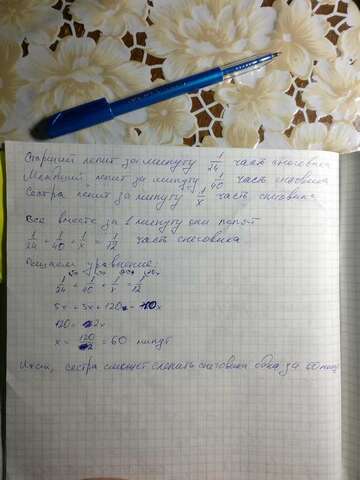 Старший лепит за минуту 1/24 часть снеговика
Младший лепит за минуту 1/40 часть снеговика
Сестра лепит за минуту 1/x часть снеговика
Все вместе за 1 минуту они лепят
1/24 + 1/40 + 1/x = 1/12 часть снеговика
Решаем уравнение:
1/24 + 1/40 + 1/x = 1/12
5x + 3x + 120 = 10x
120 = 2x
x = 120/2 = 60 минут
Итак, сестра сможет слепить снеговика одна за 60 минут